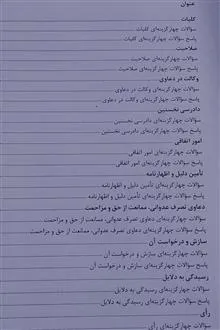 عنوان
کلیات
سؤالات چهارگزینه‌ای کلیات
پاسخ سؤالات چهارگزینه‌ای کلیات
صلاحیت
سؤالات چهارگزینه‌ای صلاحیت
پاسخ سؤالات چهارگزینه‌ای صلاحیت
وکالت در دعاوی
سؤالات چهارگزینه‌ای وکالت در دعاوی
پاسخ سؤالات چهارگزینه‌ای وکالت در دعاوی
دادرسی نخستین
سؤالات چهارگزینه‌ای دادرسی نخستین
پاسخ سؤالات چهارگزینه‌ای دادرسی نخستین
امور اتفاقی
سؤالات چهارگزینه‌ای امور اتفاقی
پاسخ سؤالات چهارگزینه‌ای امور اتفاقی
تأمین دلیل و اظهارنامه
سؤالات چهارگزینه‌ای تأمین دلیل و اظهارنامه
پاسخ سؤالات چهارگزینه‌ای تأمین دلیل و اظهارنامه
دعاوی تصرف عدوانی، ممانعت از حق و مزاحمت
سؤالات چهارگزینه‌ای دعاوی تصرف عدوانی، ممانعت از حق و مزاحمت
پاسخ سؤالات چهارگزینه‌ای تصرف عدوانی، ممانعت از حق و مزاحمت
سازش و درخواست آن
سؤالات چهارگزینه‌ای سازش و درخواست آن
پاسخ سؤالات چهارگزینه‌ای سازش و درخواست آن
رسیدگی به دلایل
سؤالات چهارگزینه‌ای رسیدگی به دلایل
پاسخ سؤالات چهارگزینه‌ای رسیدگی به دلایل
رأی
سؤالات چهارگزینه‌ای رأی